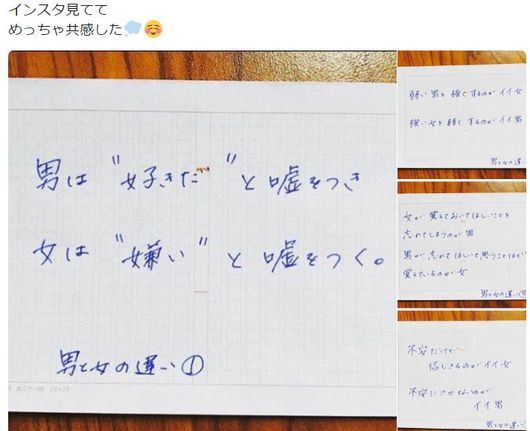 インスタ見てて
めっちゃ共感した💭☺️
男は"好きだ"と嘘をつき
女は"嫌い"と嘘をつく。
男と女の違い①
弱い男を強くするのがイイ女
強い女を弱くするのがイイ男
男と女の違い
女が覚えておいてほしいことを
忘れてしまうのが男
男が忘れてほしいと思うことほど
覚えているのが女
男と女の違い
不安だけど
信じきるのがイイ女
不安にさせないのが
イイ男
男と女の違い